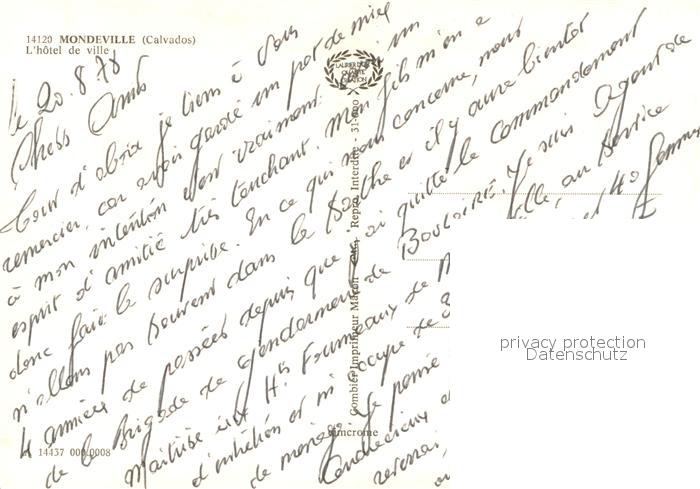 14120 MONDEVILLE (Calvados)
L'hôtel de ville
le 20.8.78
Chers Amis
Tout d'abord je tiens à vous
remercier, car avoir gardé un pot de miel
à mon intention est vraiment un
esprit d'amitié très touchant. Mon fils m'en a
donc fait la surprise. En ce qui nous concerne, nous
n'allons pas souvent dans la Sarthe et il y aura bientôt
4 années de passées depuis que j'ai quitté le commandement
de la Brigade de Gendarmerie de Bouloire. Je suis Agent de
Maîtrise aux Hts Fourneaux de ville, au service
d'entretien et m'occupe de et 40 femmes
de ménage. Je pense
LAURIER D'OR
QUALITÉ
CRÉATION
Combier Imprimeur Mâcon Repro Interdite - 31-000
Cimcrome
14437 000 0008
privacy protection
Datenschutz